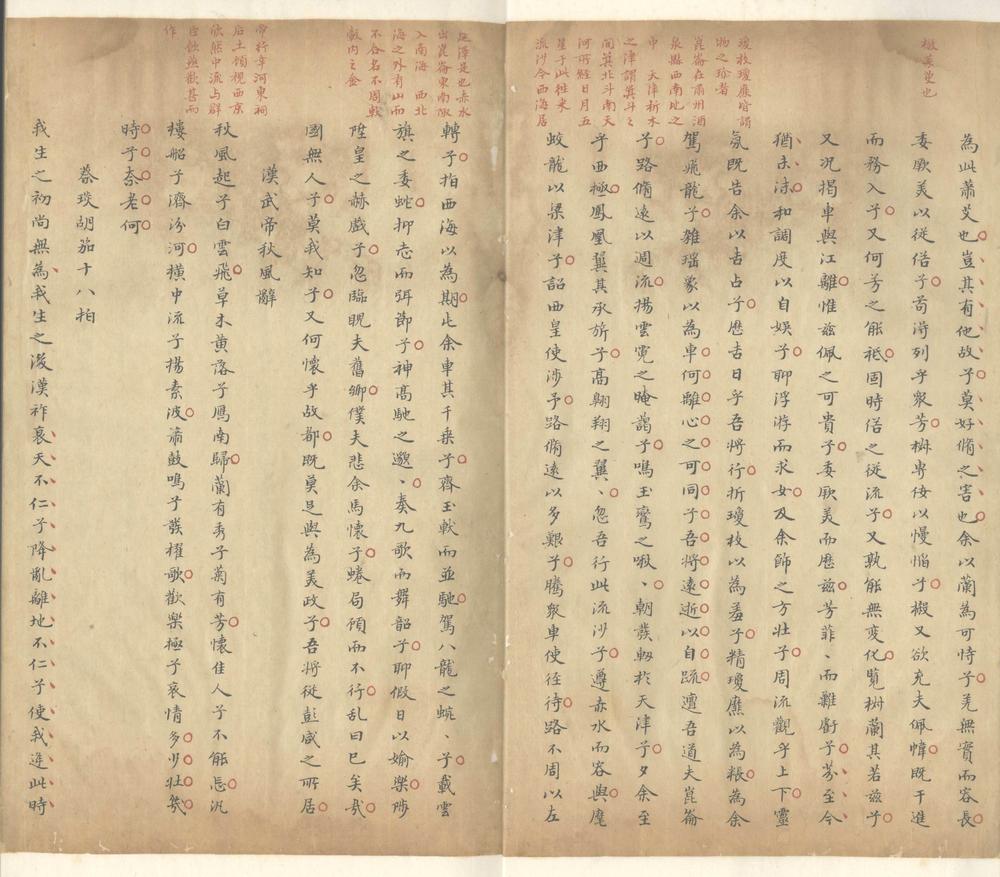 樧茱萸也
為此蕭艾也豈其有他故兮莫好脩之害也余以蘭為可恃兮羌無實而容長
委厥美以從俗兮苟得列乎衆芳椒專佞以慢慆兮樧又欲充夫佩幃既干進
而務入兮又何芳之能祗固時俗之從流兮又孰能無變化覽椒蘭其若茲兮
又况揭車與江離惟茲佩之可貴兮委厥美而歷茲芳菲、而難虧兮芬至今
猶未沬和調度以自娛兮聊浮游而求女及余飾之方壯兮周流觀乎上下靈
氛既告余以吉占兮歷吉日乎吾將行折瓊枝以為羞兮精瓊爢以為粻為余
駕飛龍兮雜瑶象以為車何離心之可同兮吾將遠逝以自疏邅吾道夫崑崙
兮路脩遠以週流揚雲霓之晻藹兮鳴玉鸞之啾、朝發軔於天津兮夕余至
乎西極鳳凰翼其承旂兮高翱翔之翼、忽吾行此流沙兮遵赤水而容與麾
蛟龍以梁津兮詔西皇使涉予路脩遠以多艱兮騰衆車使徑待路不周以左
瓊枝瓊爢皆謂
物之珍者
崑崙在肅州酒
泉縣西南地之
中　天津析木
之津謂箕斗之
間箕北斗南天
河所經日月五
星于此往来
流沙今西海居
延澤是也赤水
出崑崙東南陬
入南海　西北
海之外有山而
不合名不周軑
轂内之金
轉兮指西海以為期屯余車其千乗兮齊玉軑而並馳駕八龍之蜿、兮載雲
旗之委蛇抑志而弭節兮神高馳之邈、奏九歌而舞韶兮聊假日以媮樂陟
陞皇之赫戲兮忽臨睨夫舊鄉僕夫悲余馬懷兮蜷局顧而不行乱曰已矣哉
國無人兮莫我知兮又何懷乎故都既莫足與為美政兮吾將從彭咸之所居
漢武帝秋風辭
帝行幸河東祠
后土顧視西京
欣然中流与群
臣飲燕歡甚而
作
秋風起兮白雲飛草木黄落兮鴈南歸蘭有秀兮菊有芳懷佳人兮不能忘汎
樓船兮濟汾河横中流兮揚素波蕭鼓鳴兮發櫂歌歡樂極兮哀情多少壮幾
時兮奈老何
蔡琰胡笳十八拍
我生之初尚無為我生之後漢祚衰天不仁兮降亂離地不仁兮使我逢此時